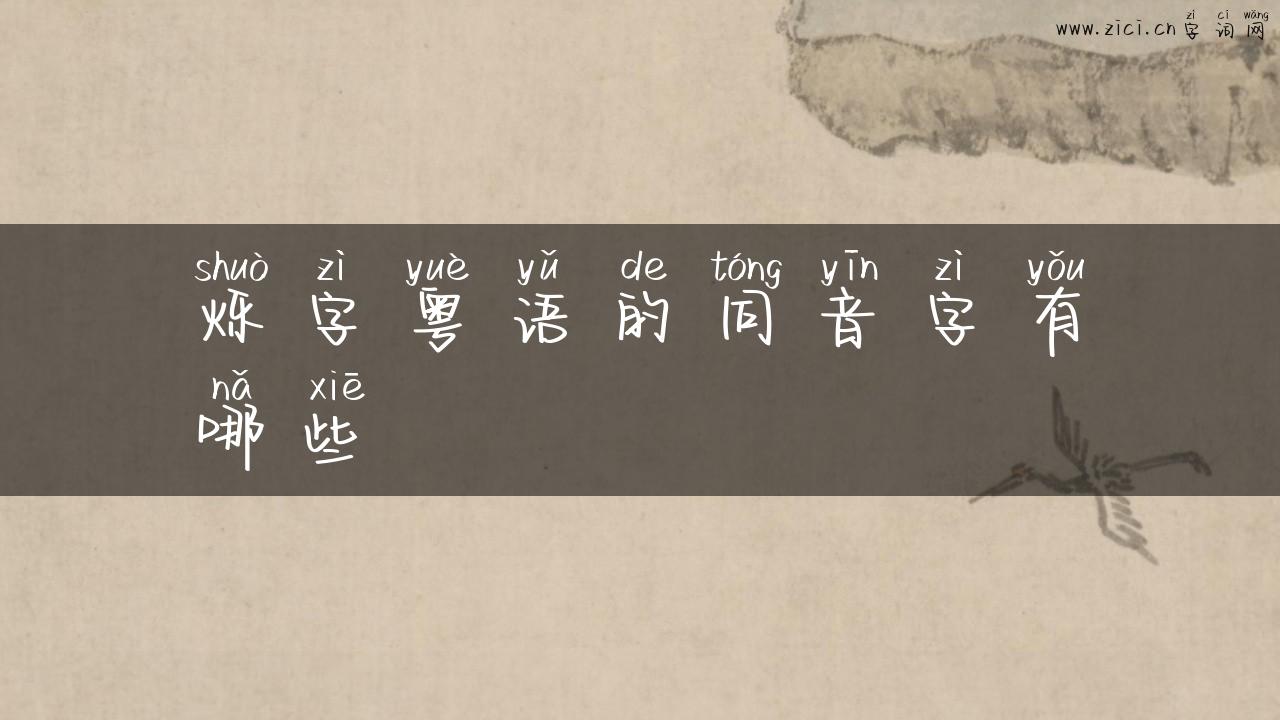 zì cí wǎng
www.zici.cn字词网
shuò zì yuè yǔ de tóng yīn zì yǒu
烁字粤语的同音字有
nǎ xiē
哪些